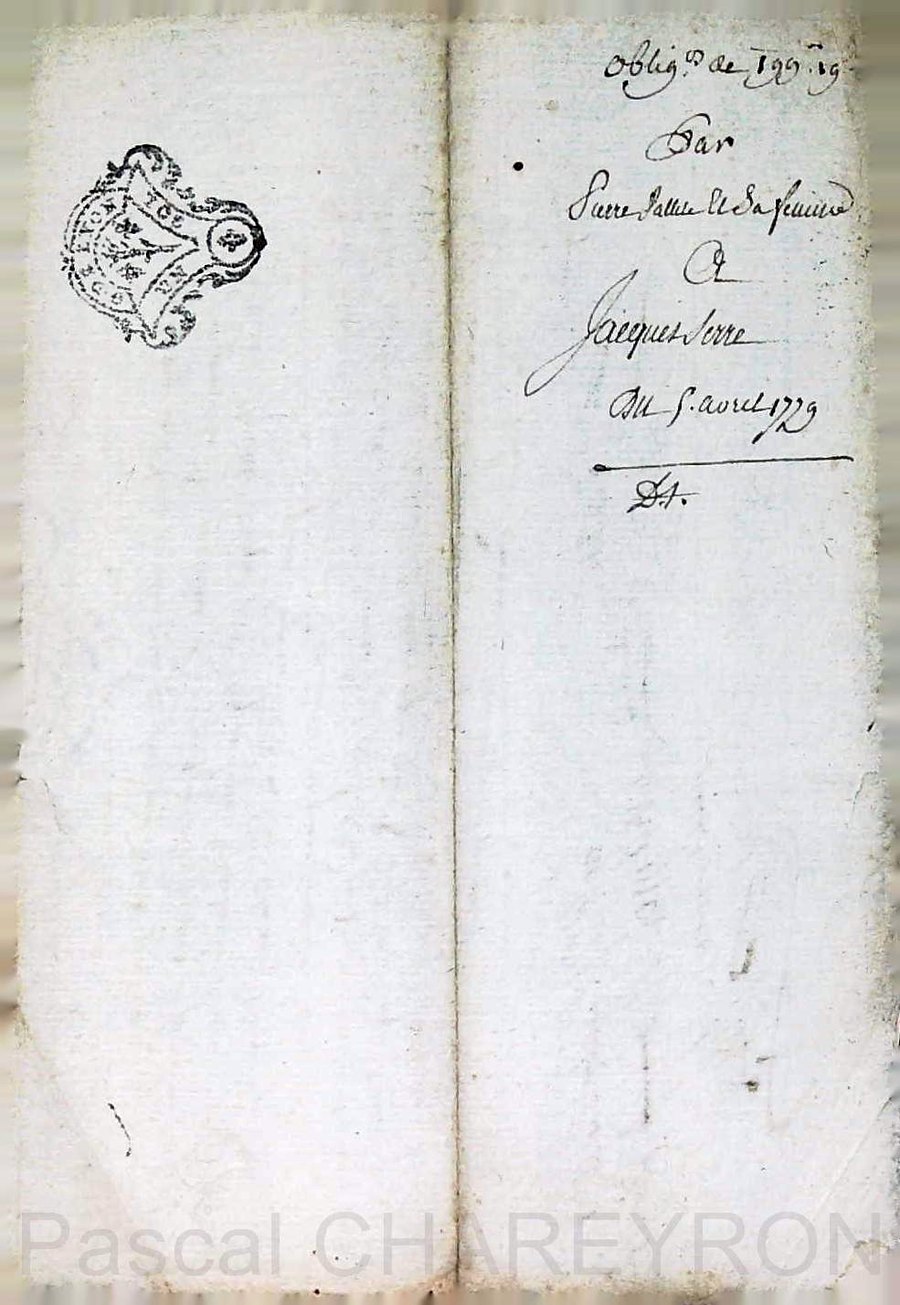 oblig.on de 199.# 19
Par
Pierre Et Sa femme
A
Jacques Serre
Du 5. avril 1779
D.t.
Pascal CHAREYRON